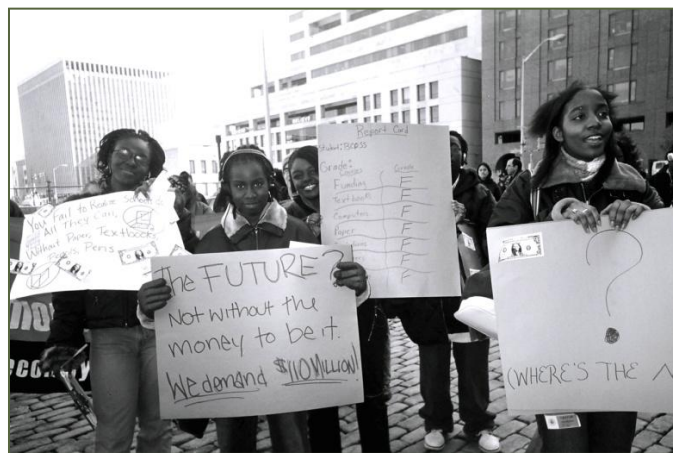 You Fail to Realize
All They Can,
Without Paper, Textbooks
Pens
The FUTURE?
Not without the
money to be it.
We demand $110 Million!
Report Card
Student: BCPSS
Grade:
Grade
Funding F
Textbooks F
Computers F
Paper F
F
F
F
?
(WHERE'S THE